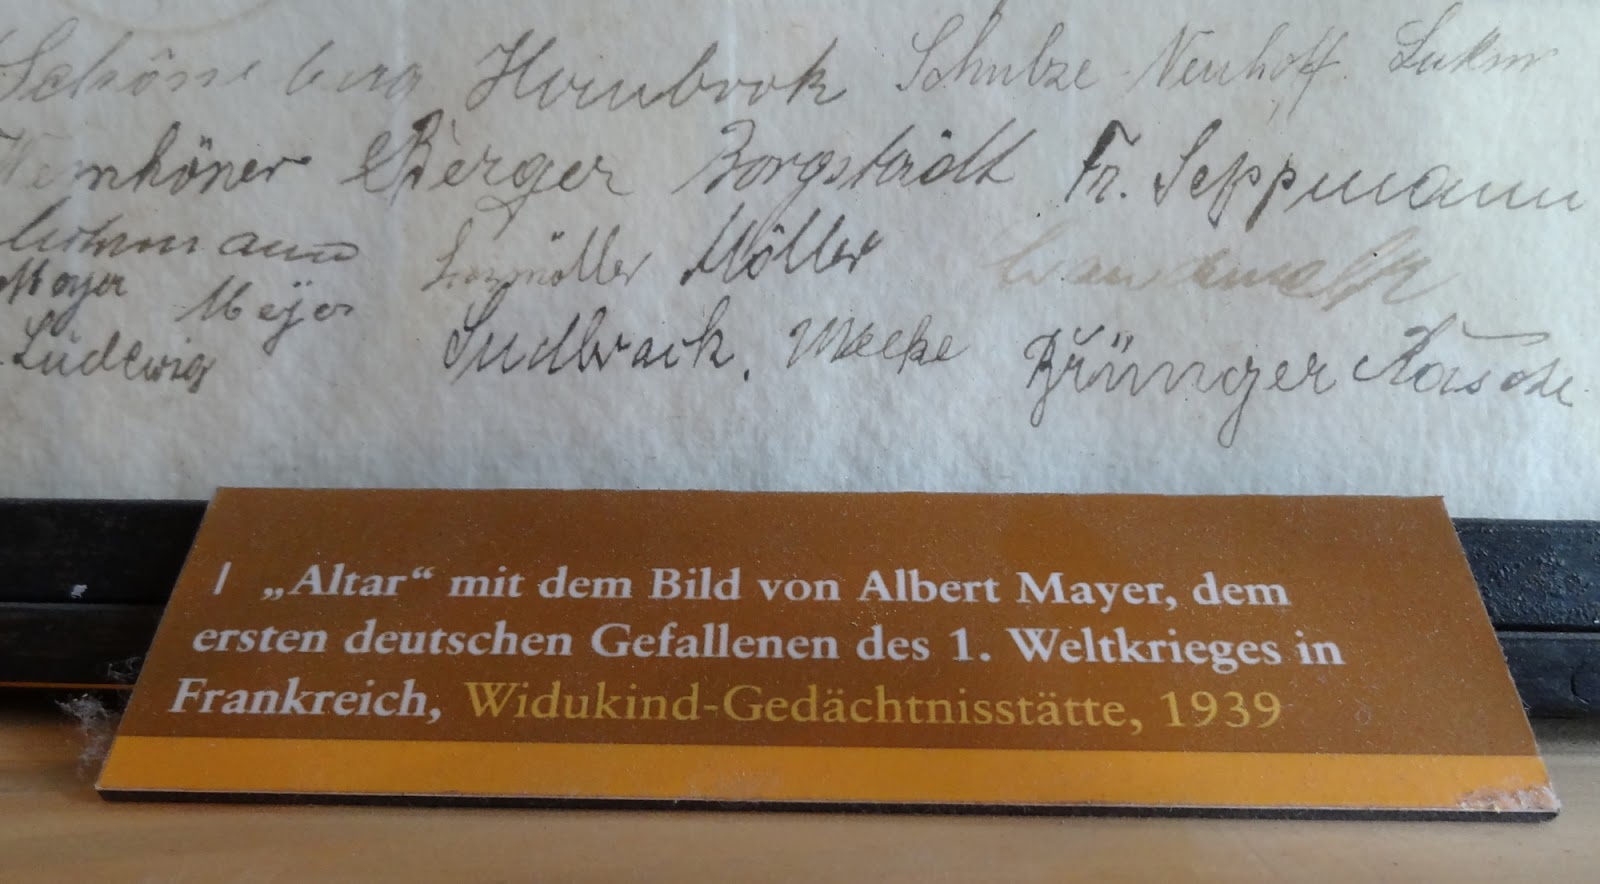 Schöneberg Hornbrok Schulze Neuhoff.
Wernhöner Berger Borgstädt Fr. Seppmann
Möller
Mayer Meyer
Ludewig Sudbrack. Meeke Brünger Rasche
| „Altar“ mit dem Bild von Albert Mayer, dem
ersten deutschen Gefallenen des 1. Weltkrieges in
Frankreich, Widukind-Gedächtnisstätte, 1939